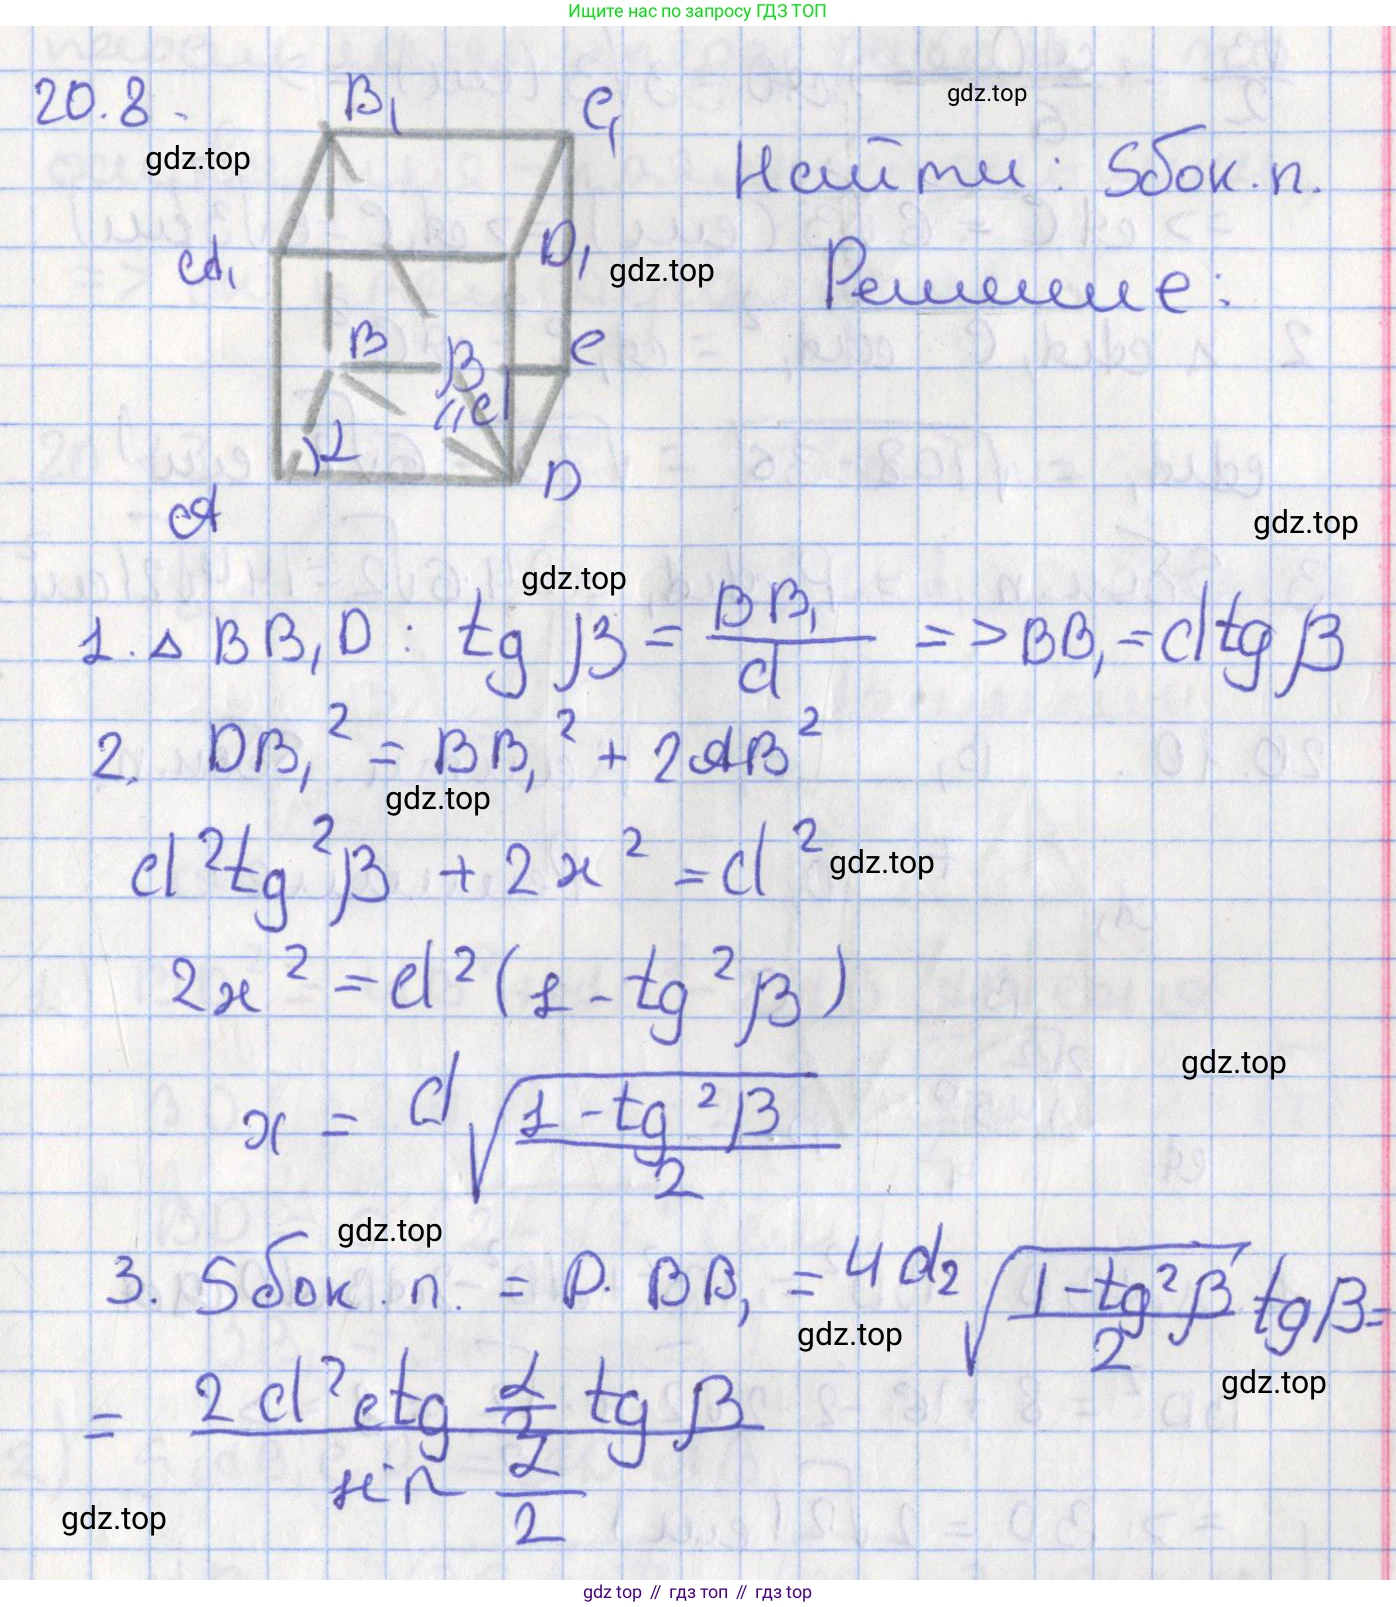 Ищите нас по запросу ГДЗ ТОП
20.8.
B₁ C₁
gdz.top
gdz.top
Найти: Sбок.п.
A₁ D₁
gdz.top
Решение:
B β C
d
α
A D
gdz.top
gdz.top
1. Δ BB₁D: tg β = BB₁/d => BB₁ = d tg β
2. DB₁² = BB₁² + 2AB²
gdz.top
d² tg² β + 2x² = d²
gdz.top
2x² = d² (1 - tg² β)
gdz.top
x = d √((1 - tg² β)/2)
gdz.top
3. Sбок.п. = P · BB₁ = 4d₂ √((1 - tg² β)/2) tg β =
gdz.top
gdz.top
= (2d² ctg α/2 tg β)/(sin α/2)
gdz.top
gdz top // гдз топ // гдз top